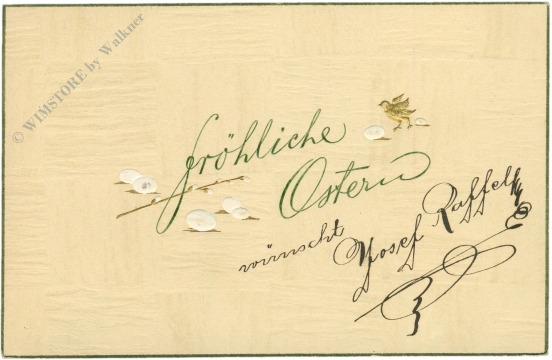 © WIMSTORE by Walkner
fröhliche
Ostern
wünscht Josef Raffelt